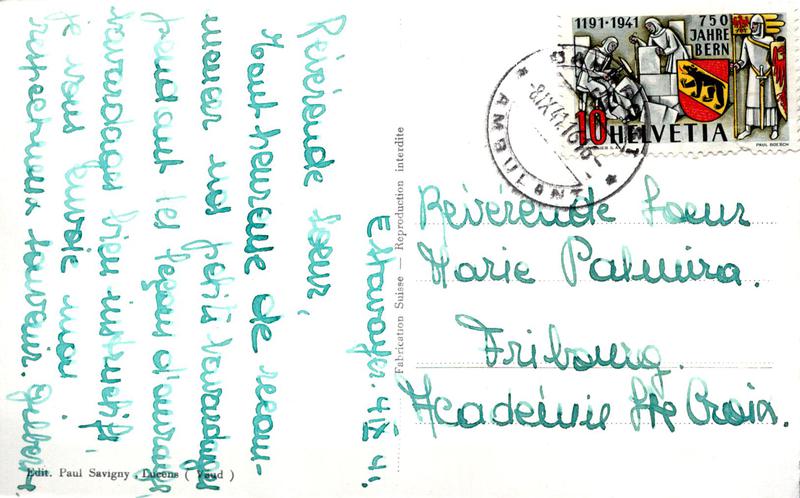 1191-1941
750
JAHRE
BERN
10 HELVETIA
PAUL BOESCH
AMBULANT
-8.IX41.16
Révérende Soeur
Marie Palmira.
Fribourg.
Académie Ste Croix.
Fabrication Suisse — Reproduction interdite
Estavayer. 4 IX 41
Révérende Soeur,
tout heureuse de recom-
mencer nos petits bavardages
pendant les leçons d'ouvrages,
bavardages bien instructifs,
je vous envoie mon
respectueux souvenir.
Edit. Paul Savigny, Lucens ( Vaud )